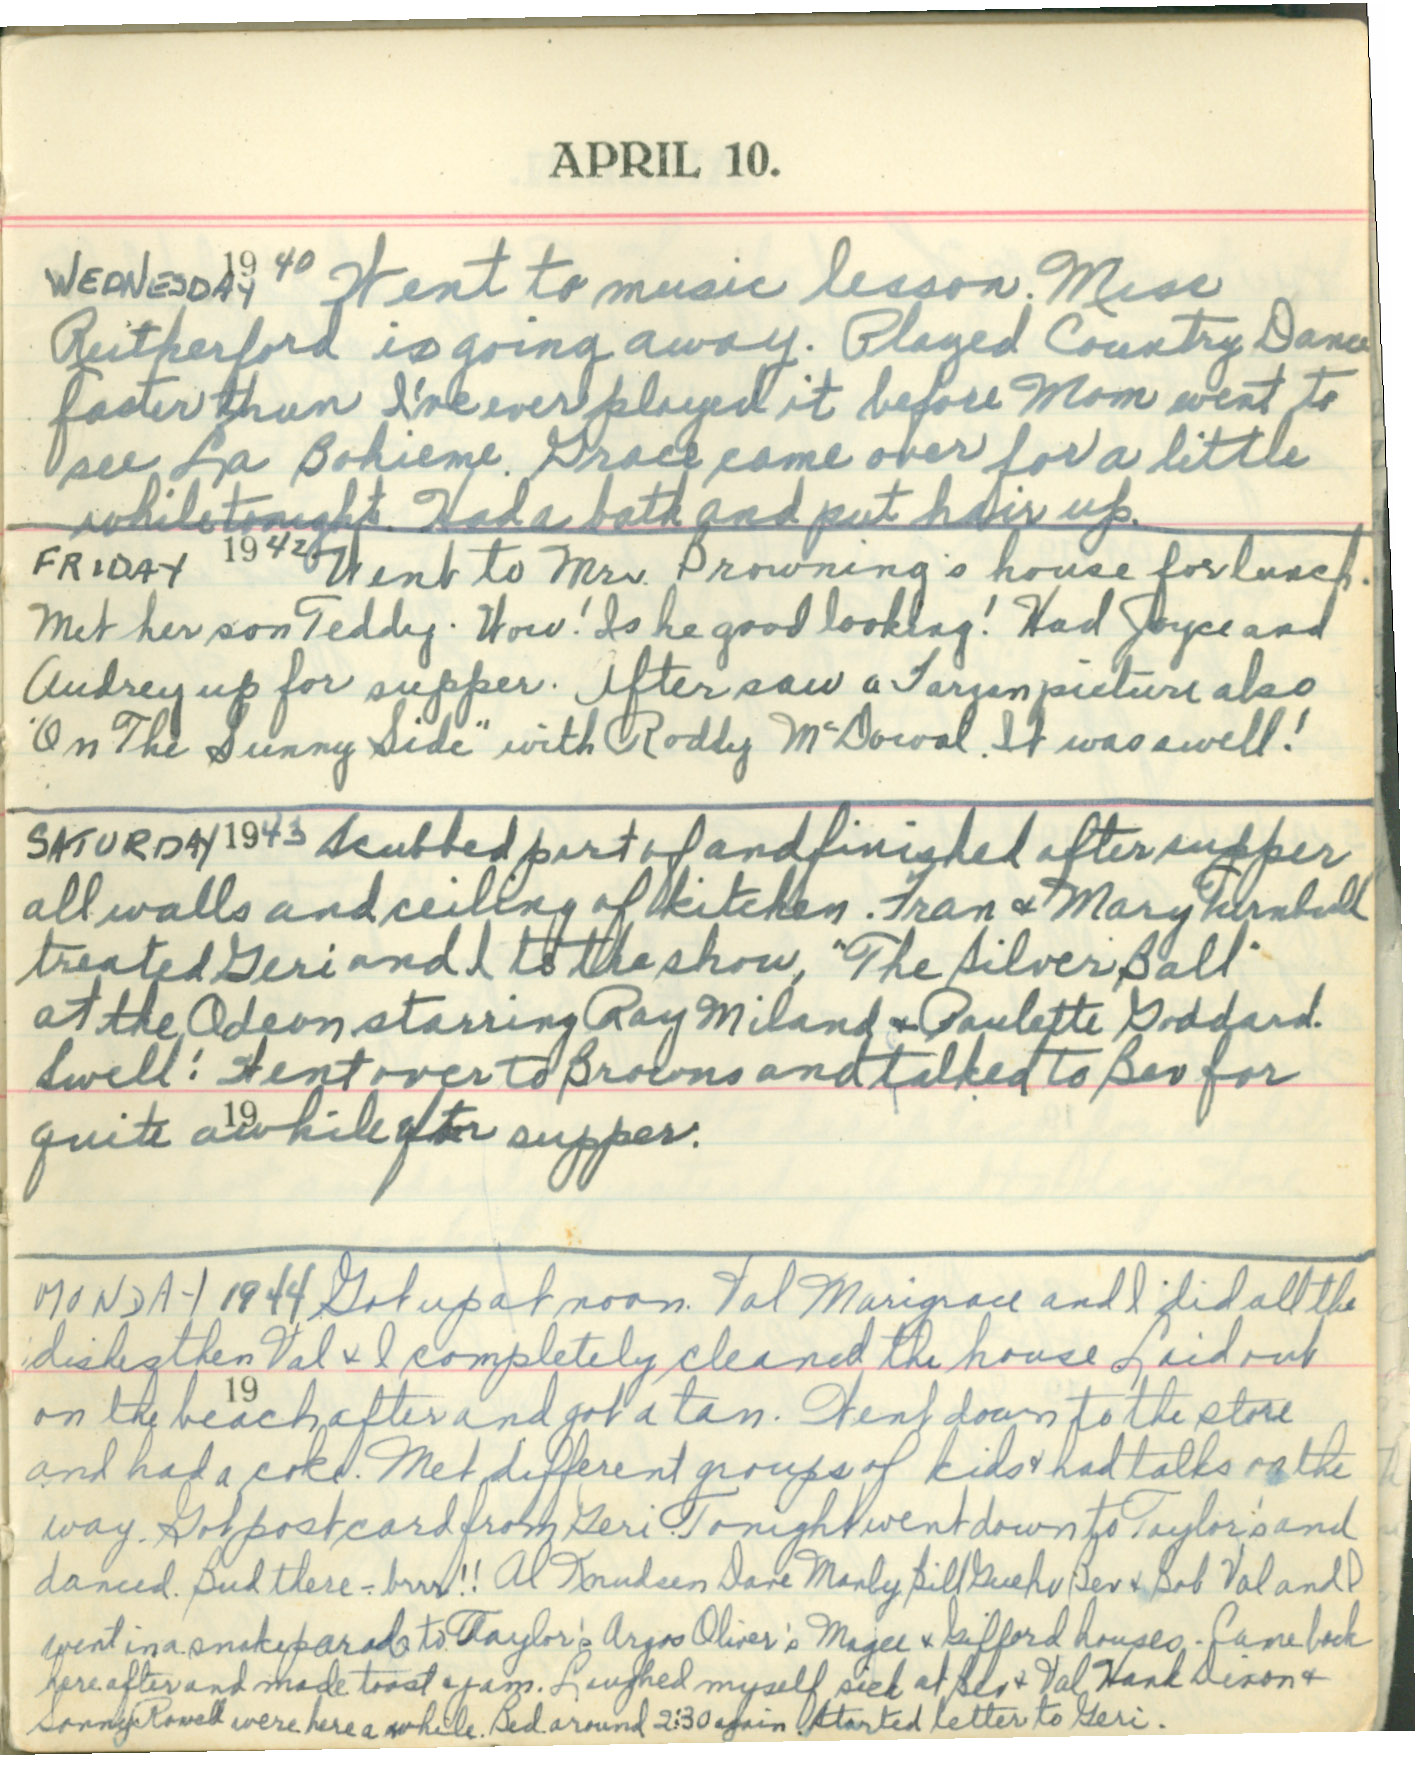 APRIL 10.
WEDNESDAY 1940 Went to music lesson. Miss
Reitherford is going away. Played Country Dance
faster than I've ever played it before Mom went to
see La Bohieme. Grace came over for a little
while tonight. Had a bath and put hair up.
FRIDAY 1942 Went to Mrs. Browning's house for lunch.
Met her son Teddy. Wow! Is he good looking! Had Joyce and
Audrey up for supper. After saw a Tarzan picture also
"On The Sunny Side" with Roddy McDowal. It was swell!
SATURDAY 1943 Scubbed part of and finished after supper
all walls and ceiling of kitchen. Fran & Mary Turnbull
treated Geri and I to the show, "The Silver Ball"
at the Odeon starring Ray Miland & Paulette Goddard.
Swell! Went over to Browns and talked to Bev for
19
quite awhile after supper.
MONDAY 1944 Got up at noon. Val Marigrace and I did all the
dishes then Val & I completely cleaned the house Laid out
19
on the beach after and got a tan. Went down to the store
and had a coke. Met different groups of kids & had talks on the
way. Got postcard from Geri. Tonight went down to Taylor's and
danced. Bud there - brrr!! Al Knudsen Dave Manly Bill Bev & Bob Val and I
went in a snakeparade to Taylor's Argos Oliver's Magee & Gifford houses. Came back
here after and made toast & jam. Laughed myself sick at Bev & Val Hank Dixon &
Sonny Rowell were here a while. Bed around 2:30 again. Started letter to Geri.